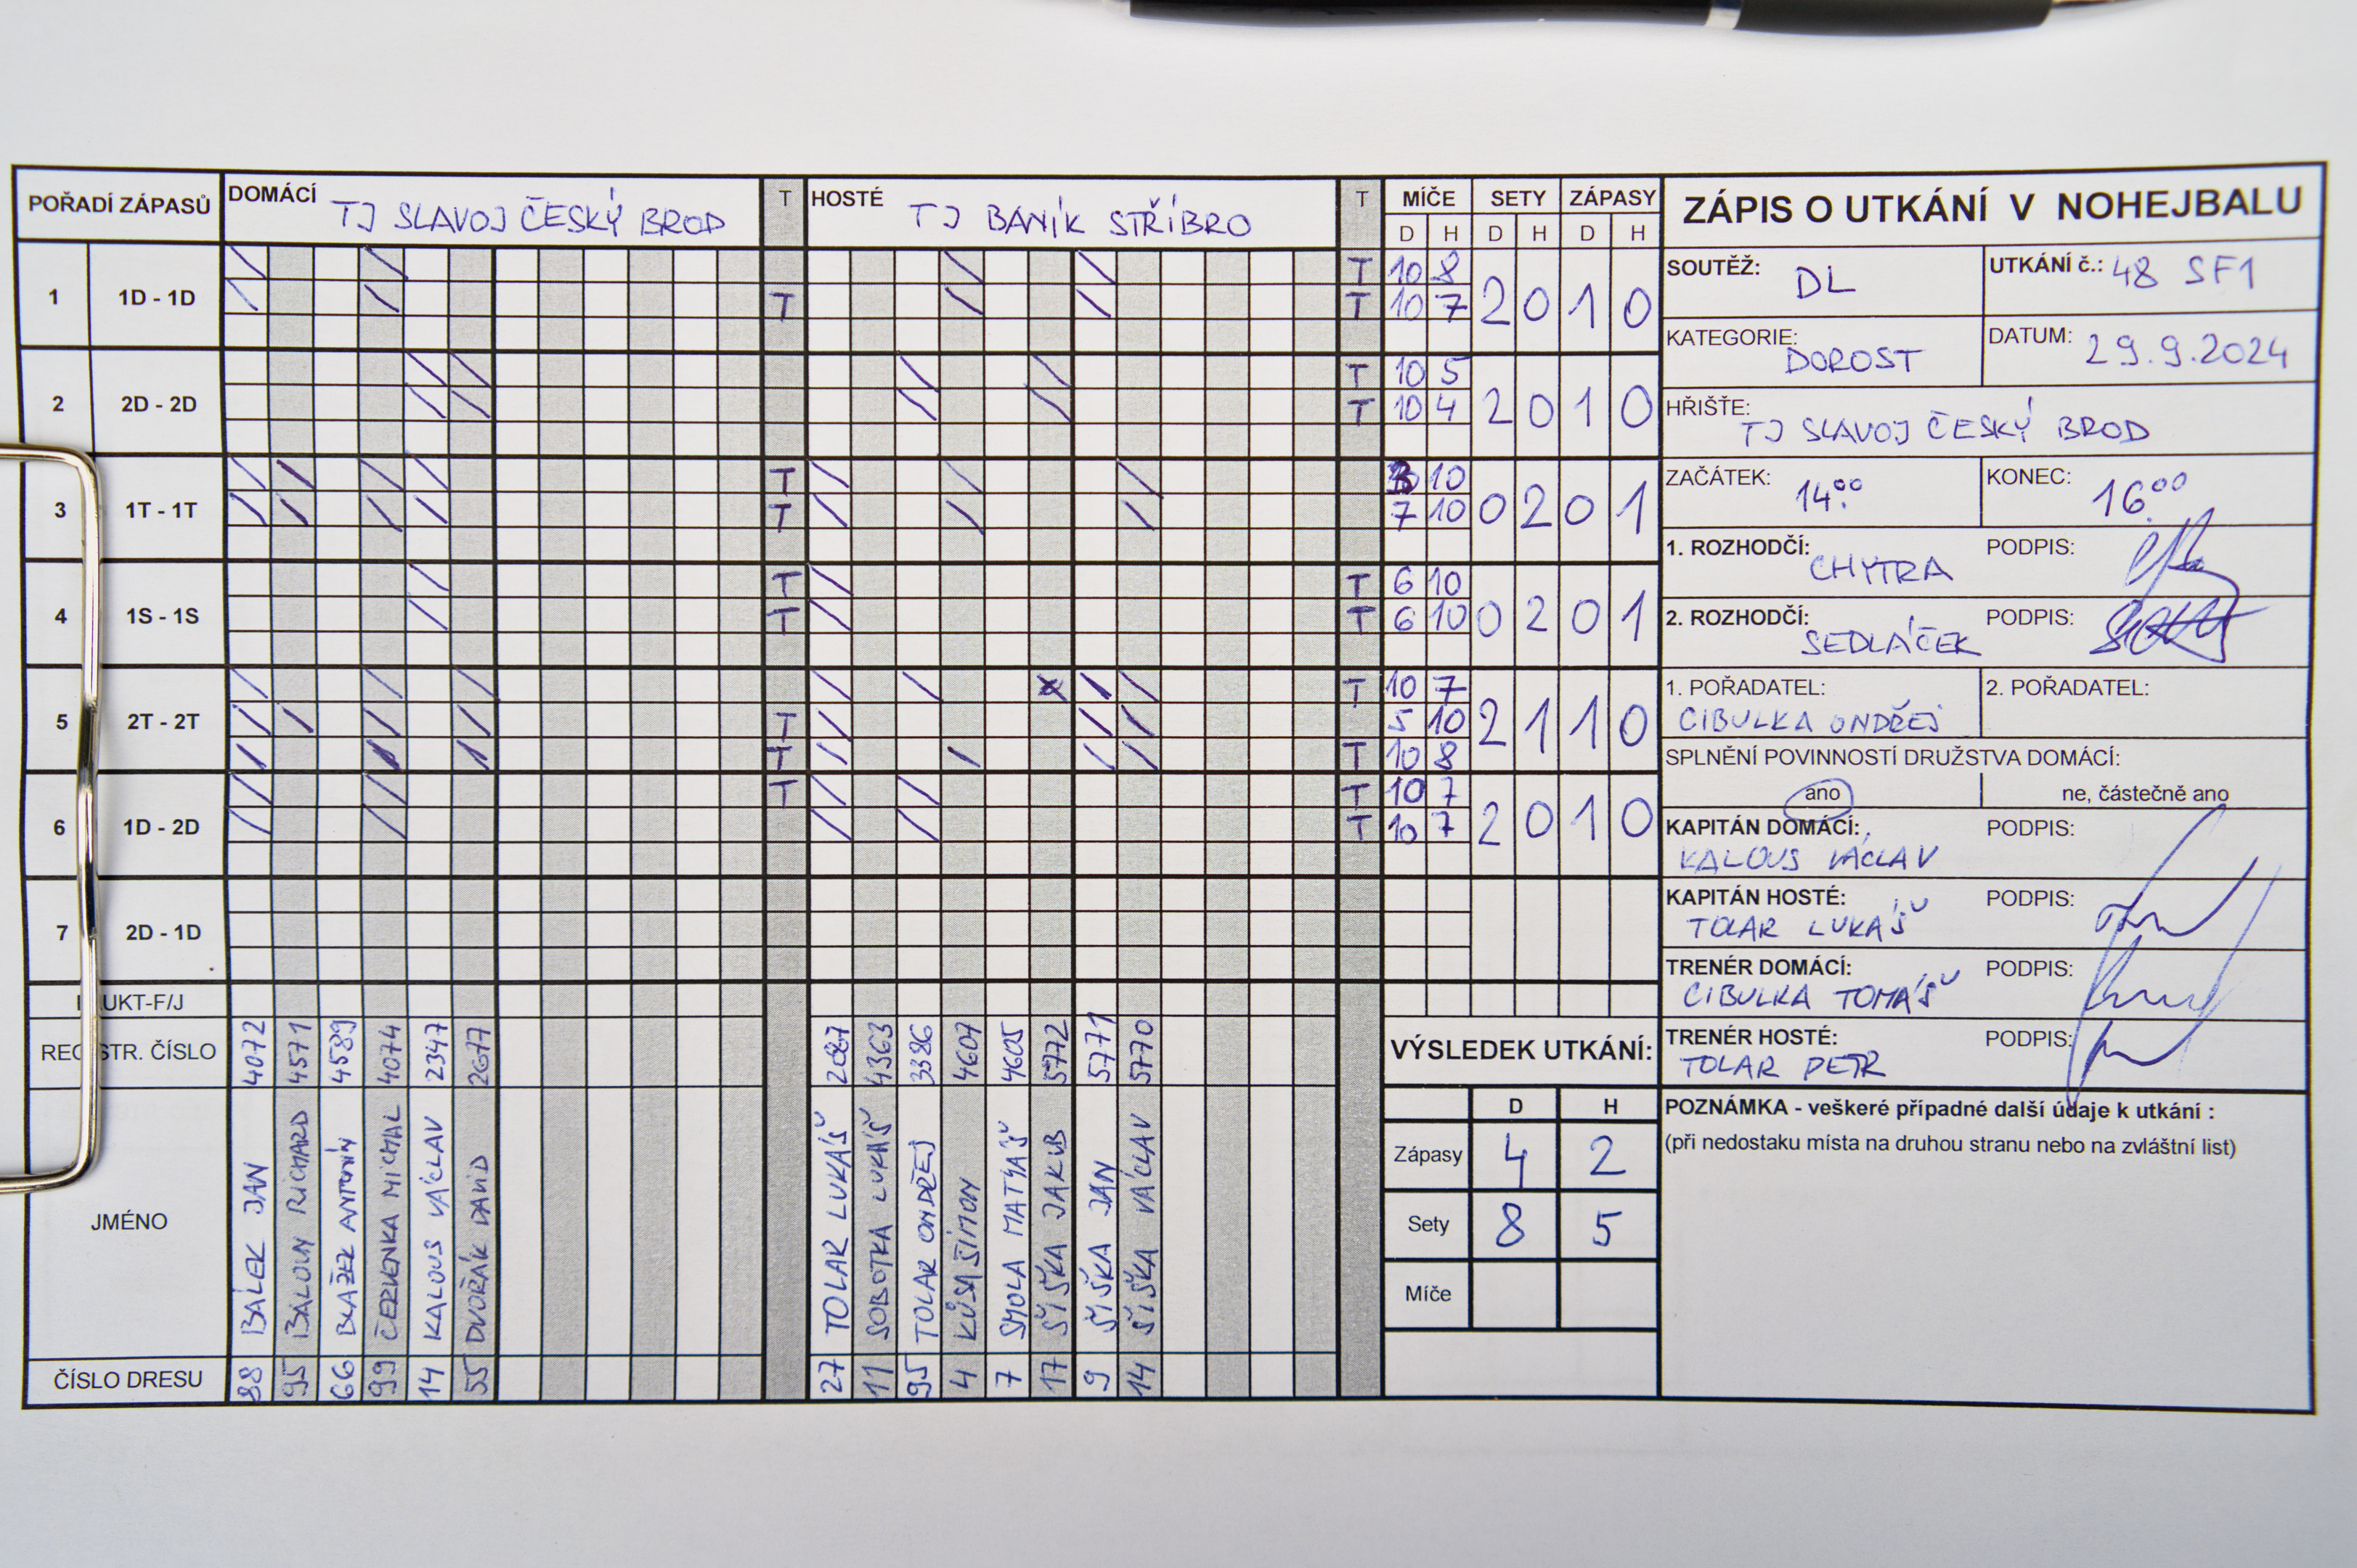 POŘADÍ ZÁPASŮ DOMÁCÍ TJ SLAVOJ ČESKÝ BROD T HOSTÉ TJ BANÍK STŘÍBRO T MÍČE SETY ZÁPASY
D H D H D H
1 1D - 1D T 10 8 2 0 1 0
T T 10 7
2 2D - 2D T 10 5 2 0 1 0
T 10 4
3 1T - 1T T 3 10 0 2 0 1
T 7 10
4 1S - 1S T T 6 10 0 2 0 1
T T 6 10
5 2T - 2T T 10 7 2 1 1 0
T 5 10
T T 10 8
6 1D - 2D T T 10 7 2 0 1 0
T 10 7
7 2D - 1D
UKT-F/J
REGISTR. ČÍSLO 4072 4571 4589 4074 2347 2677 2087 4363 3386 4607 4605 5772 5771 5770
JMÉNO BÁLEK JAN BALOUN RICHARD BLAŽEK ANTONÍN ČERVENKA MICHAL KALOUS VÁCLAV DVOŘÁK DAVID TOLAR LUKÁŠ SOBOTKA LUKÁŠ TOLAR ONDŘEJ KŮSA ŠIMON SMOLA MATYÁŠ ŠIŠKA JAKUB ŠIŠKA JAN ŠIŠKA VÁCLAV
ČÍSLO DRESU 88 95 66 99 14 55 27 11 95 4 7 17 9 14
VÝSLEDEK UTKÁNÍ:
D H
Zápasy 4 2
Sety 8 5
Míče
ZÁPIS O UTKÁNÍ V NOHEJBALU
SOUTĚŽ: DL UTKÁNÍ č.: 48 SF1
KATEGORIE: DOROST DATUM: 29.9.2024
HŘIŠTĚ: TJ SLAVOJ ČESKÝ BROD
ZAČÁTEK: 14:00 KONEC: 16:00
1. ROZHODČÍ: CHYTRA PODPIS:
2. ROZHODČÍ: SEDLÁČEK PODPIS:
1. POŘADATEL: CIBULKA ONDŘEJ 2. POŘADATEL:
SPLNĚNÍ POVINNOSTÍ DRUŽSTVA DOMÁCÍ:
ano ne, částečně ano
KAPITÁN DOMÁCÍ: KALOUS VÁCLAV PODPIS:
KAPITÁN HOSTÉ: TOLAR LUKÁŠ PODPIS:
TRENÉR DOMÁCÍ: CIBULKA TOMÁŠ PODPIS:
TRENÉR HOSTÉ: TOLAR PETR PODPIS:
POZNÁMKA - veškeré případné další údaje k utkání :
(při nedostaku místa na druhou stranu nebo na zvláštní list)